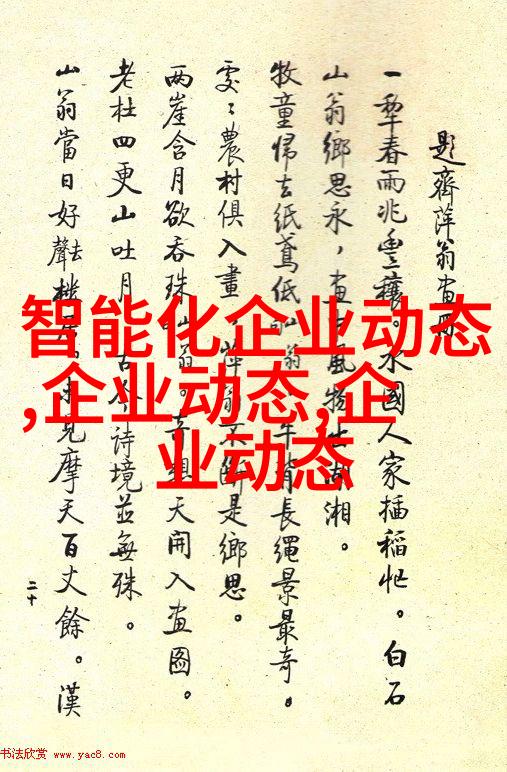 題齊萍翁畫冊
一犁春雨兆豐穰。水國人家插稻忙。白石
山翁鄉思永，畫風物湖湘。
牧童歸去紙鳶低山翁牛背長繩景最奇。
處々農村俱入畫，萍翁不是鄉思。
兩崖含月欲吞珠山翁奇想天開入畫圖。
老杜四更山吐月古今詩境並無殊。
山翁當日好聲去樓居。未見摩天百丈餘。漢
二十
智能化企业动态
,企业动态,企
业动态
书法欣赏 www.yac8.com